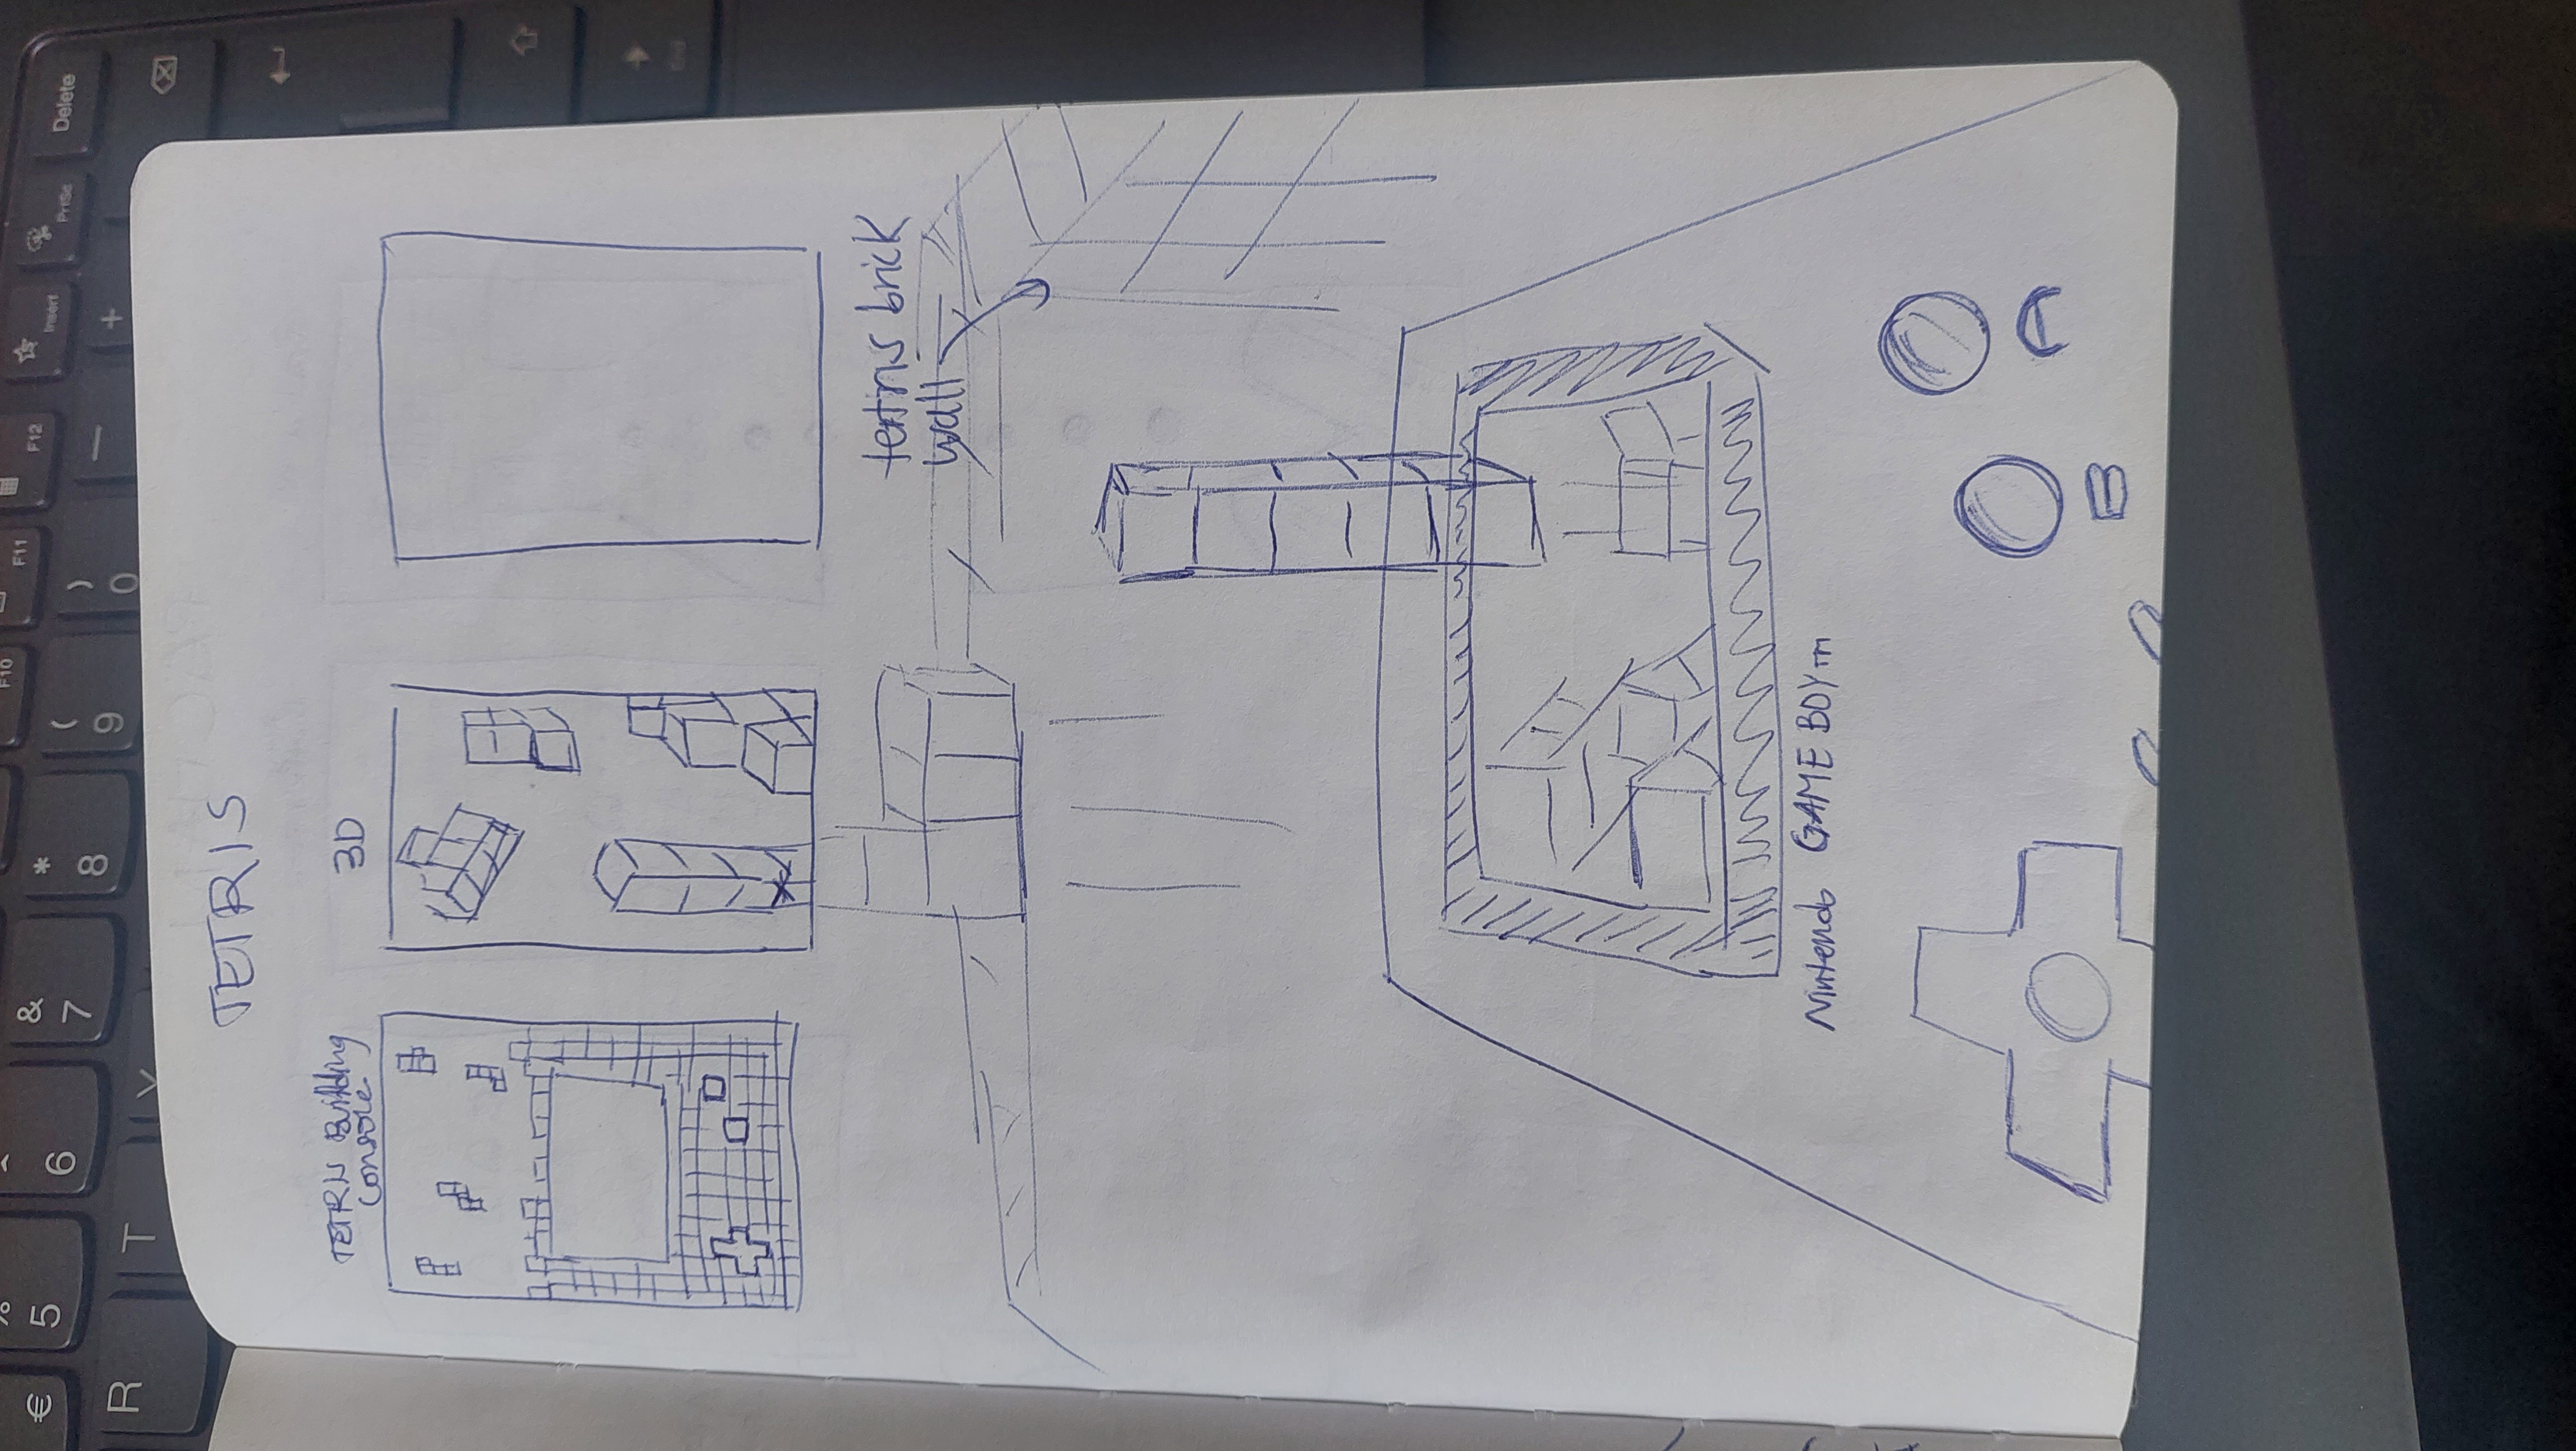 €
%
5
^
6
&
7
*
8
(
9
)
0
—
+
F10
F11
F12
Insert
PrtSc
Delete
R
T
Y
End
TETRIS
TETRIS Building
console
3D
tertris brick
wall
Nintendo GAME BOY TM
A
B